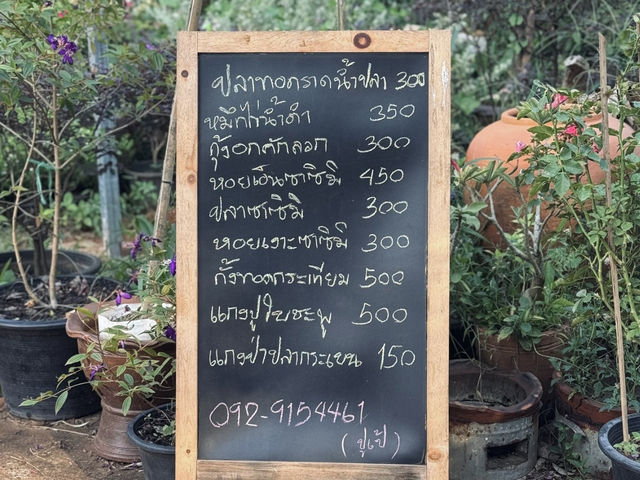 ปลาทอดราดน้ำปลา 300
หมึกไข่น้ำดำ 350
กุ้งอกหักลวก 300
หอยเอ็นซาซิมิ 450
ปลาซาซิมิ 300
หอยเงาะซาซิมิ 300
กั้งทอดกระเทียม 500
แกงปูใบชะพู 500
แกงป่าปลากระเบน 150
092-9154461
(ปูเป้)